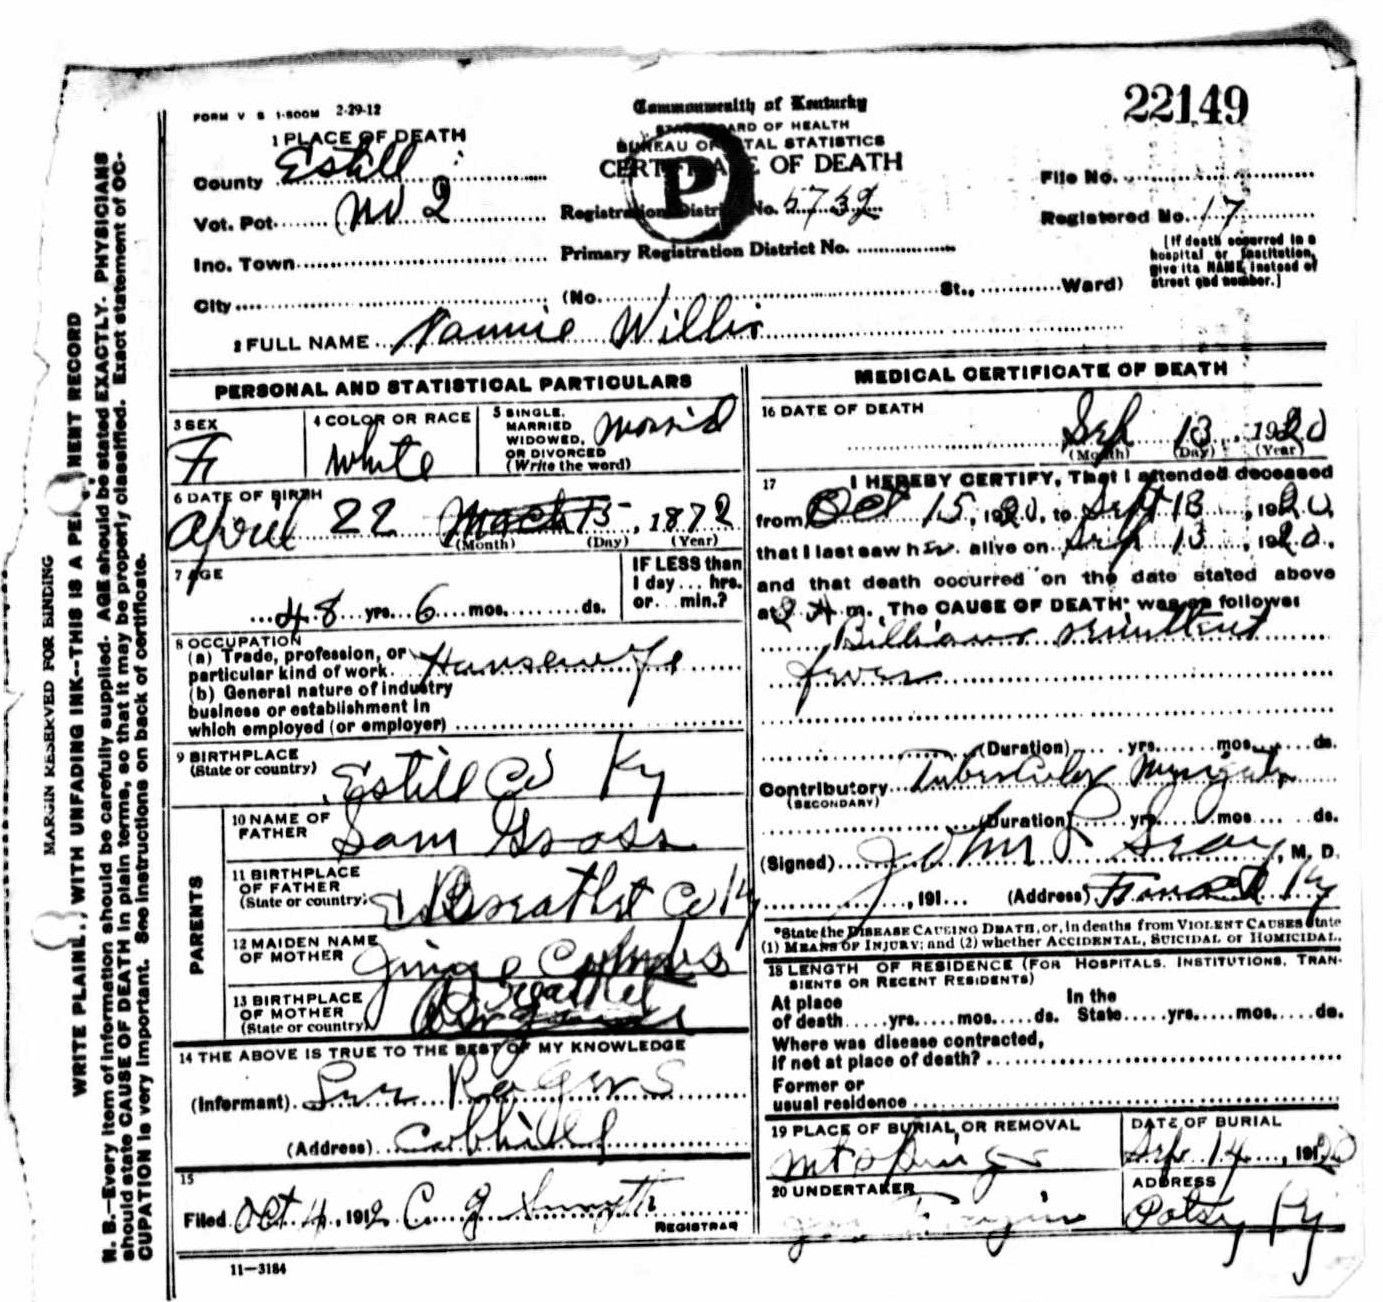 FORM V S 1-500M 2-29-12
Commonwealth of Kentucky
22149
1 PLACE OF DEATH
STATE BOARD OF HEALTH
BUREAU OF VITAL STATISTICS
County Estill
CERTIFICATE OF DEATH
P
File No.
Vot. Pot. No 2
Registration District No. 5732
Registered No. 17
Inc. Town
Primary Registration District No.
[If death occurred in a
hospital or institution,
give its NAME instead of
street and number.]
City (No. St., Ward)
2 FULL NAME Nannie Willis
PERSONAL AND STATISTICAL PARTICULARS
3 SEX
F
4 COLOR OR RACE
White
5 SINGLE,
MARRIED
WIDOWED,
OR DIVORCED
(Write the word)
6 DATE OF BIRTH
April 22 March 15, 1872
(Month) (Day) (Year)
7 AGE
48 yrs. 6 mos. ds.
IF LESS than
1 day... hrs.
or... min.?
8 OCCUPATION
(a) Trade, profession, or
particular kind of work. Housewife
(b) General nature of industry
business or establishment in
which employed (or employer)
9 BIRTHPLACE
(State or country)
Estill Co Ky
PARENTS
10 NAME OF
FATHER
Sam Gross
11 BIRTHPLACE
OF FATHER
(State or country)
Breathitt Co Ky
12 MAIDEN NAME
OF MOTHER
Combs
13 BIRTHPLACE
OF MOTHER
(State or country)
Breathitt
14 THE ABOVE IS TRUE TO THE BEST OF MY KNOWLEDGE
(Informant) Rogers
(Address) Cobhill
15
Filed Oct 4, 191 C. G. Smyth
REGISTRAR
11—3184
MEDICAL CERTIFICATE OF DEATH
16 DATE OF DEATH
Sep 13, 1920
(Month) (Day) (Year)
17 I HEREBY CERTIFY, That I attended deceased
from Oct 15, 1920, to Sept 13, 1920,
that I last saw her alive on Sep 13, 1920,
and that death occurred on the date stated above
at A m. The CAUSE OF DEATH* was as follows:
Billious
fever
(Duration) yrs. mos. ds.
Contributory
(SECONDARY)
(Duration) yrs. mos. ds.
(Signed) John, M. D.
, 191... (Address) Ky
*State the DISEASE CAUSING DEATH, or, in deaths from VIOLENT CAUSES state
(1) MEANS OF INJURY; and (2) whether ACCIDENTAL, SUICIDAL or HOMICIDAL.
18 LENGTH OF RESIDENCE (FOR HOSPITALS, INSTITUTIONS, TRAN-
SIENTS OR RECENT RESIDENTS)
At place In the
of death yrs. mos. ds. State yrs. mos. ds.
Where was disease contracted,
if not at place of death?
Former or
usual residence
19 PLACE OF BURIAL OR REMOVAL
DATE OF BURIAL
Sep 14, 1920
20 UNDERTAKER
ADDRESS
Patsy Ky
MARGIN RESERVED FOR BINDING
WRITE PLAINLY, WITH UNFADING INK--THIS IS A PERMANENT RECORD
N. B.—Every item of information should be carefully supplied. AGE should be stated EXACTLY. PHYSICIANS
should state CAUSE OF DEATH in plain terms, so that it may be properly classified. Exact statement of OC-
CUPATION is very important. See instructions on back of certificate.